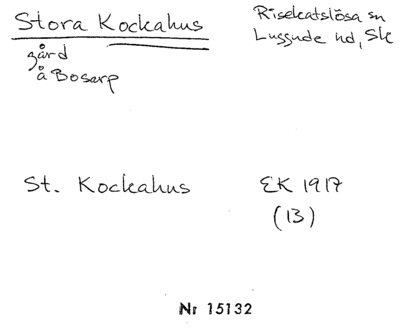 Stora Kockahus
gård
å Bosarp
Risekatslösa sn
Luggude hd, Sk
St. Kockahus
EK 1917
(13)
Nr 15132